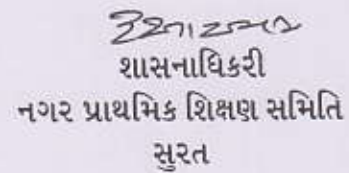 શાસનાધિકરી
નગર પ્રાથમિક શિક્ષણ સમિતિ
સુરત